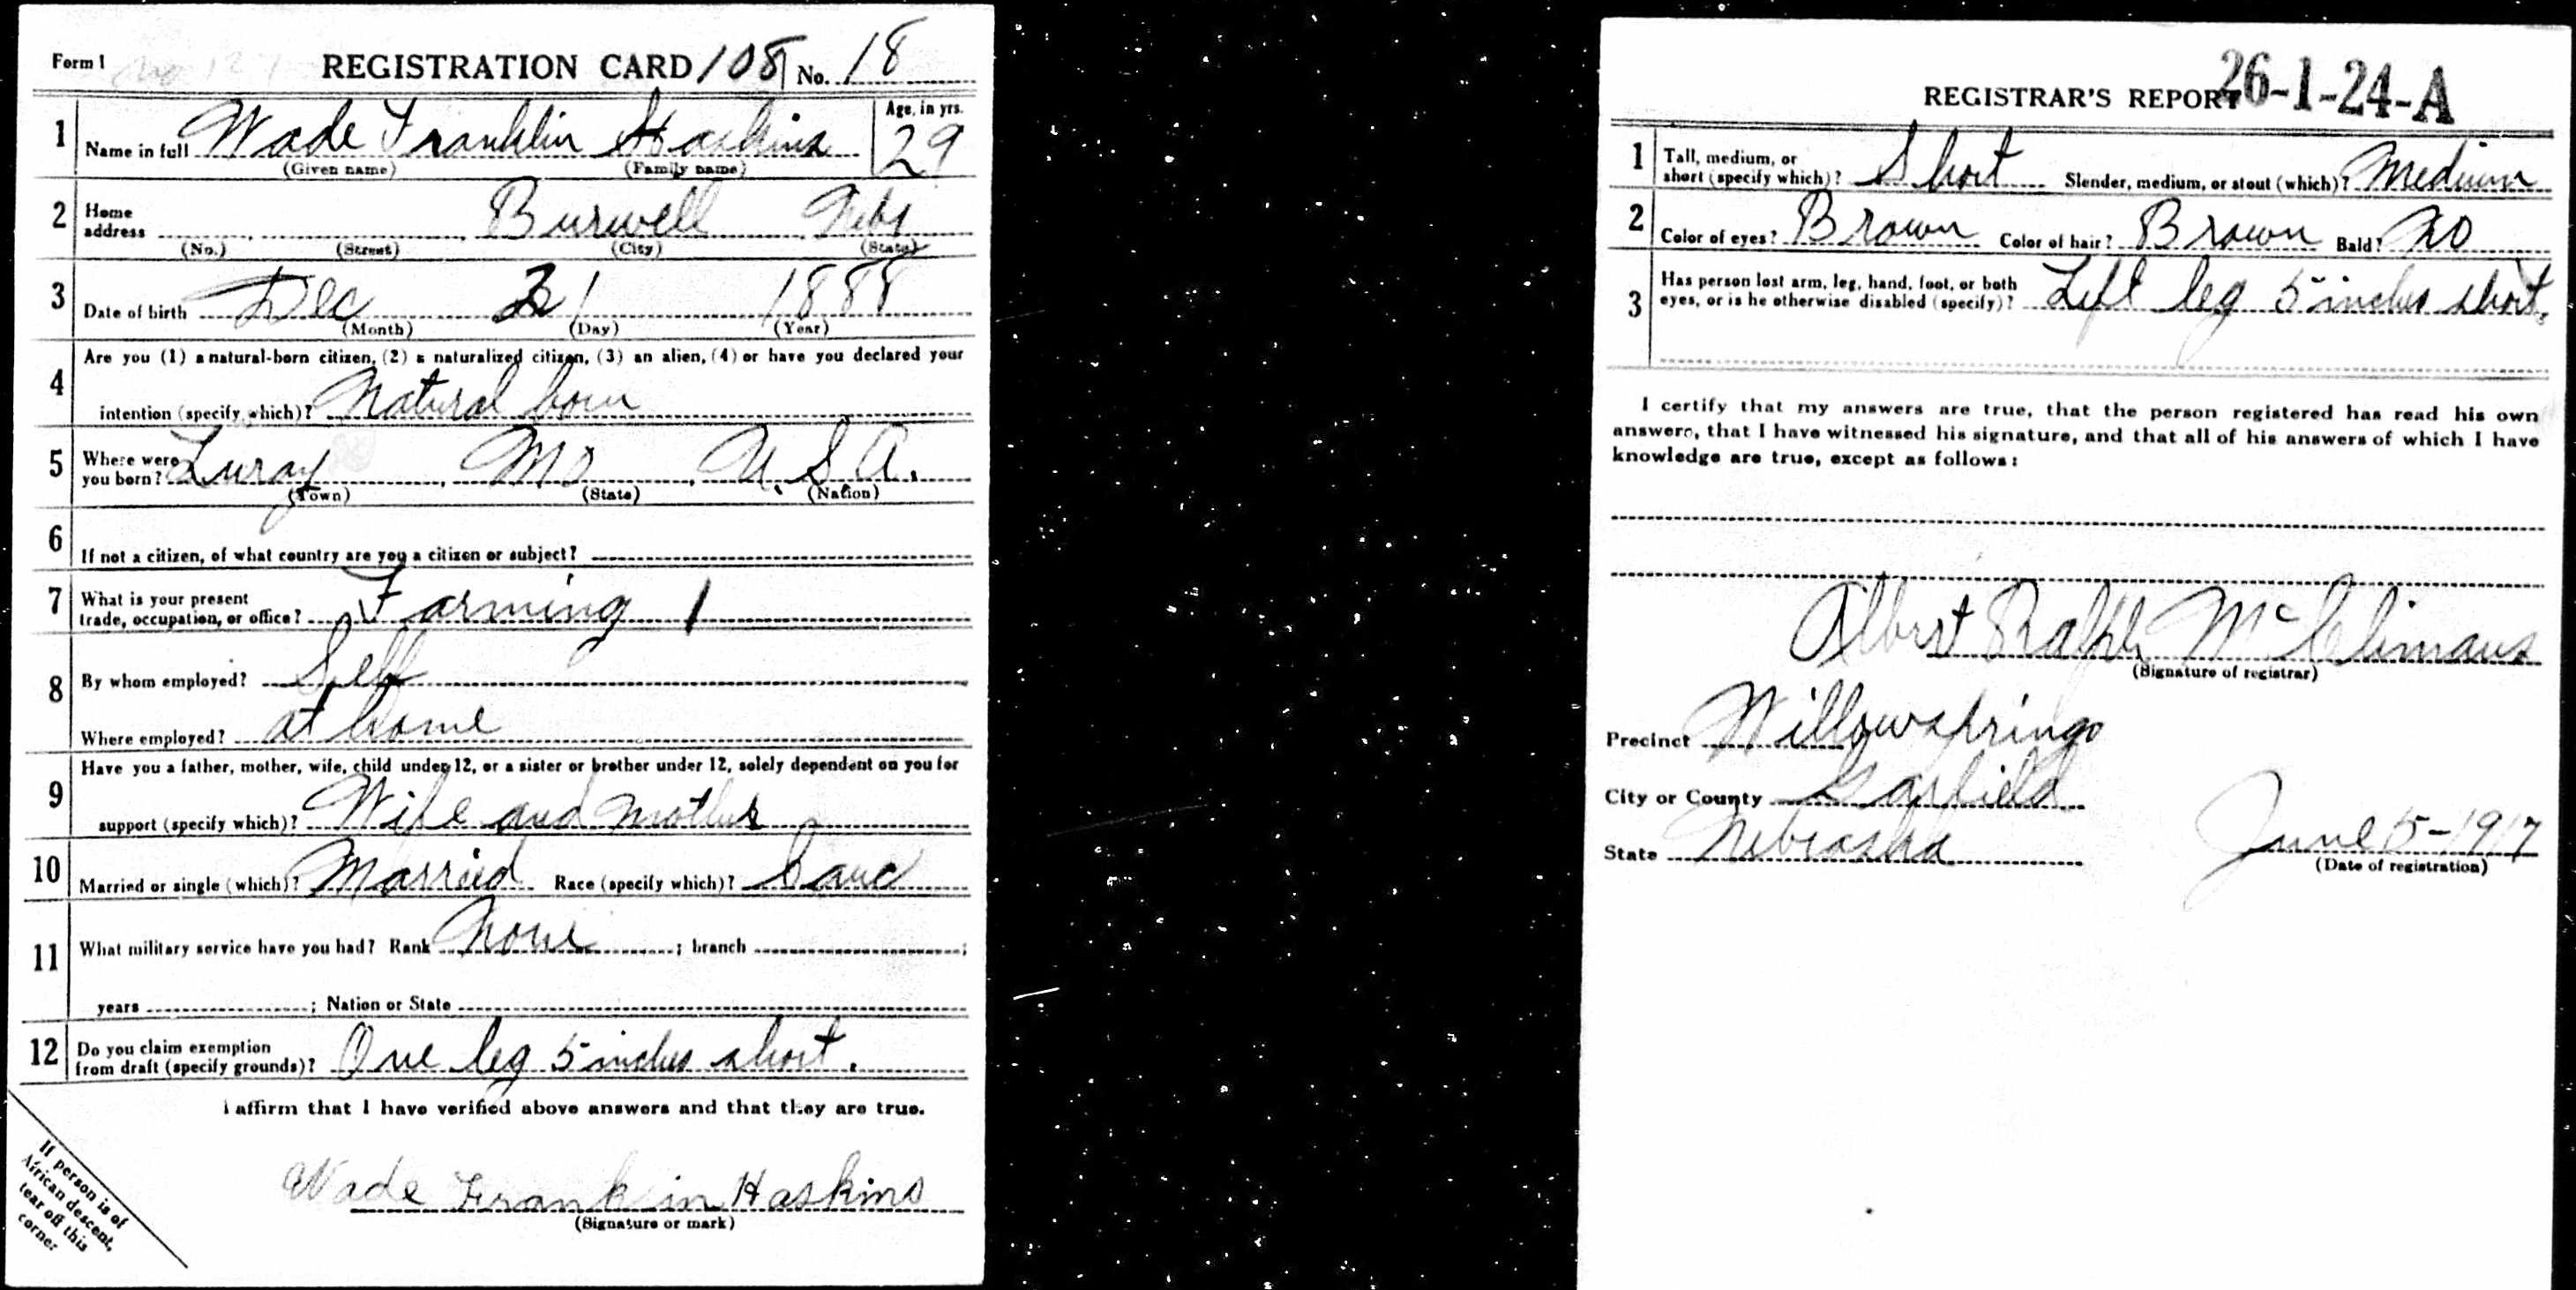 Form 1 REGISTRATION CARD 108 No. 18
1 Name in full Wade Franklin Haskins Age, in yrs. 29
(Given name) (Family name)
2 Home address Burwell Nebr
(No.) (Street) (City) (State)
3 Date of birth Dec 21 1888
(Month) (Day) (Year)
4 Are you (1) a natural-born citizen, (2) a naturalized citizen, (3) an alien, (4) or have you declared your
intention (specify which)? Natural born
5 Where were you born? Luray, Mo, U.S.A.
(Town) (State) (Nation)
6 If not a citizen, of what country are you a citizen or subject?
7 What is your present trade, occupation, or office? Farming 1
8 By whom employed? Self
Where employed? at home
9 Have you a father, mother, wife, child under 12, or a sister or brother under 12, solely dependent on you for
support (specify which)? Wife and Mother
10 Married or single (which)? Married Race (specify which)? Cauc
11 What military service have you had? Rank None ; branch ;
years ; Nation or State
12 Do you claim exemption from draft (specify grounds)? One leg 5 inches short.
I affirm that I have verified above answers and that they are true.
Wade Franklin Haskins
(Signature or mark)
If person is of
African descent,
tear off this
corner
REGISTRAR'S REPORT 26-1-24-A
1 Tall, medium, or short (specify which)? Short Slender, medium, or stout (which)? Medium
2 Color of eyes? Brown Color of hair? Brown Bald? No
3 Has person lost arm, leg, hand, foot, or both
eyes, or is he otherwise disabled (specify)? Left leg 5 inches short.
I certify that my answers are true, that the person registered has read his own
answers, that I have witnessed his signature, and that all of his answers of which I have
knowledge are true, except as follows:
Albert Ralph McClimans
(Signature of registrar)
Precinct Willowsprings
City or County Garfield
State Nebraska June 5-1917
(Date of registration)